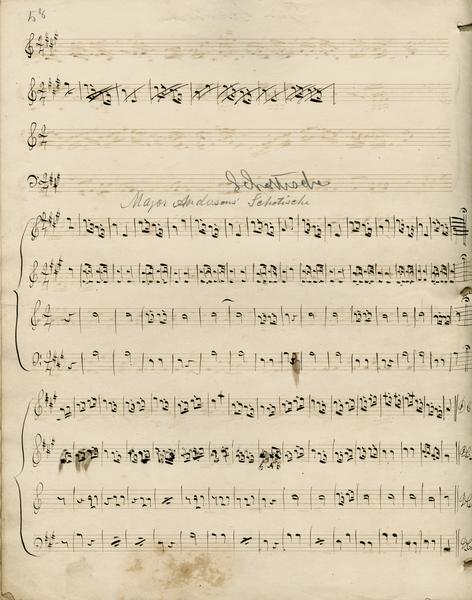 58
Schottische
Major Andersons' Schotische